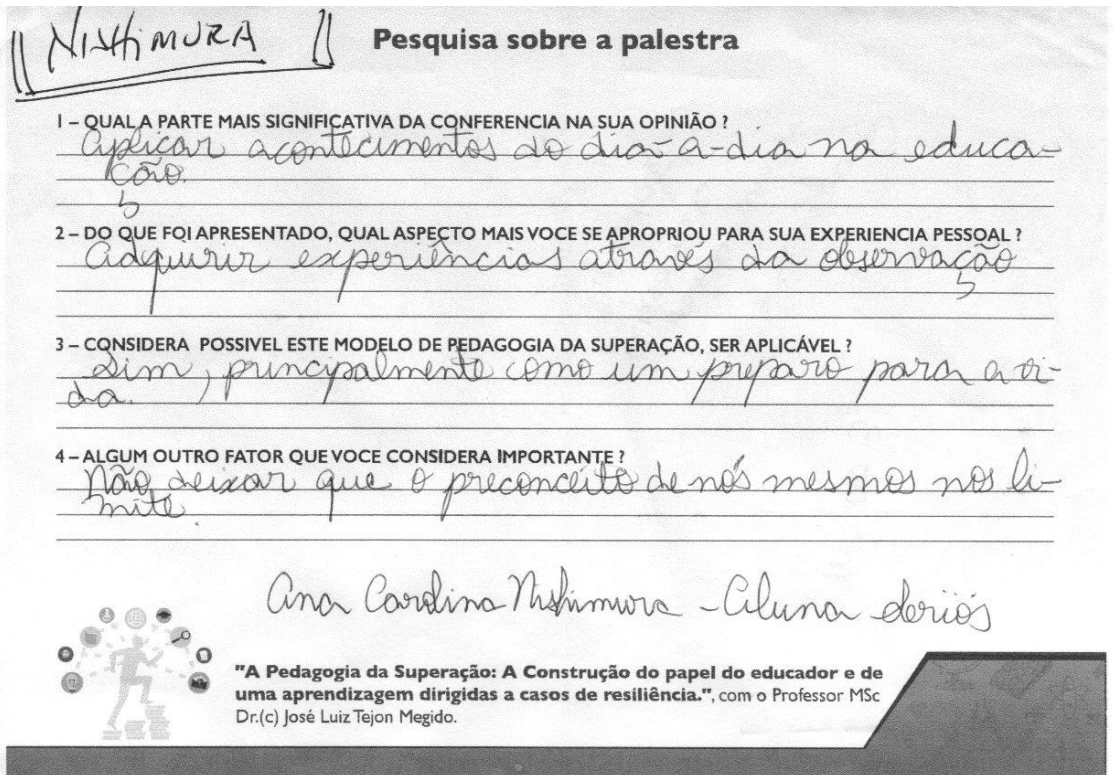 NISHIMURA
Pesquisa sobre a palestra
1 – QUAL A PARTE MAIS SIGNIFICATIVA DA CONFERENCIA NA SUA OPINIÃO ?
Aplicar acontecimentos do dia-a-dia na educa-
ção.
2 – DO QUE FOI APRESENTADO, QUAL ASPECTO MAIS VOCE SE APROPRIOU PARA SUA EXPERIENCIA PESSOAL ?
Adquirir experiências através da observação
3 – CONSIDERA POSSIVEL ESTE MODELO DE PEDAGOGIA DA SUPERAÇÃO, SER APLICÁVEL ?
Sim, principalmente como um preparo para a vi-
da.
4 – ALGUM OUTRO FATOR QUE VOCE CONSIDERA IMPORTANTE ?
Não deixar que o preconceito de nós mesmos nos li-
mite.
Ana Carolina Nishimura - Aluna
"A Pedagogia da Superação: A Construção do papel do educador e de
uma aprendizagem dirigidas a casos de resiliência.", com o Professor MSc
Dr.(c) José Luiz Tejon Megido.